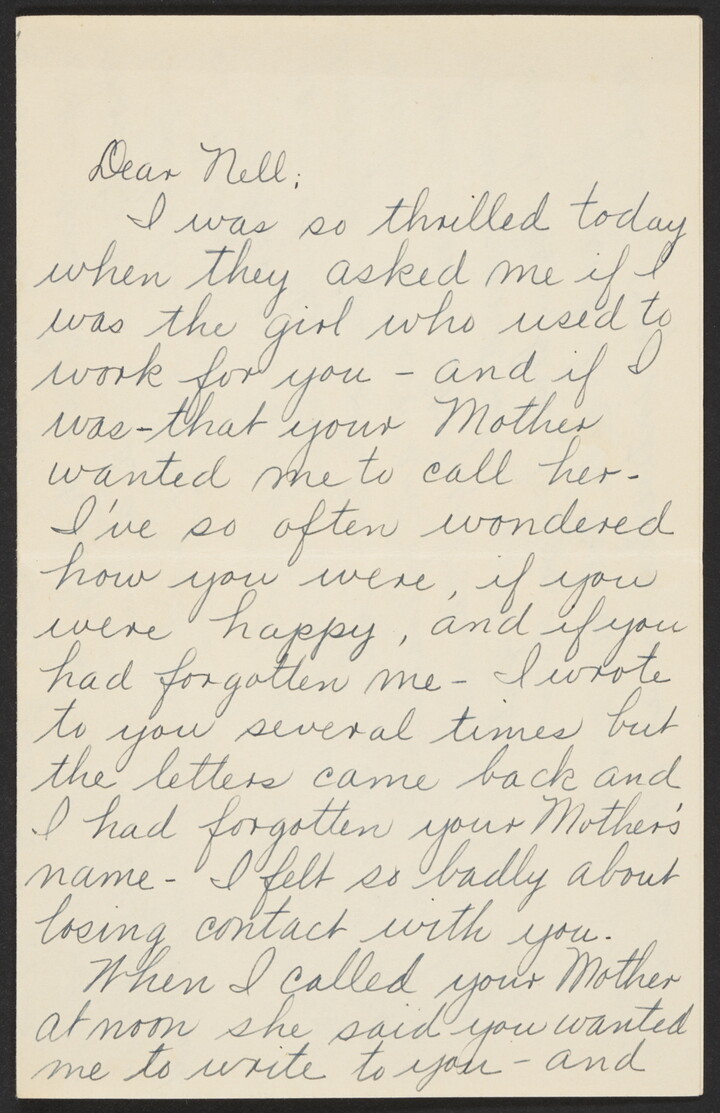 Dear Nell:
I was so thrilled today
when they asked me if I
was the girl who used to
work for you - and if I
was - that your Mother
wanted me to call her -
I've so often wondered
how you were, if you
were happy, and if you
had forgotten me - I wrote
to you several times but
the letters came back and
I had forgotten your Mother's
name - I felt so badly about
losing contact with you.
When I called your Mother
at noon she said you wanted
me to write to you - and